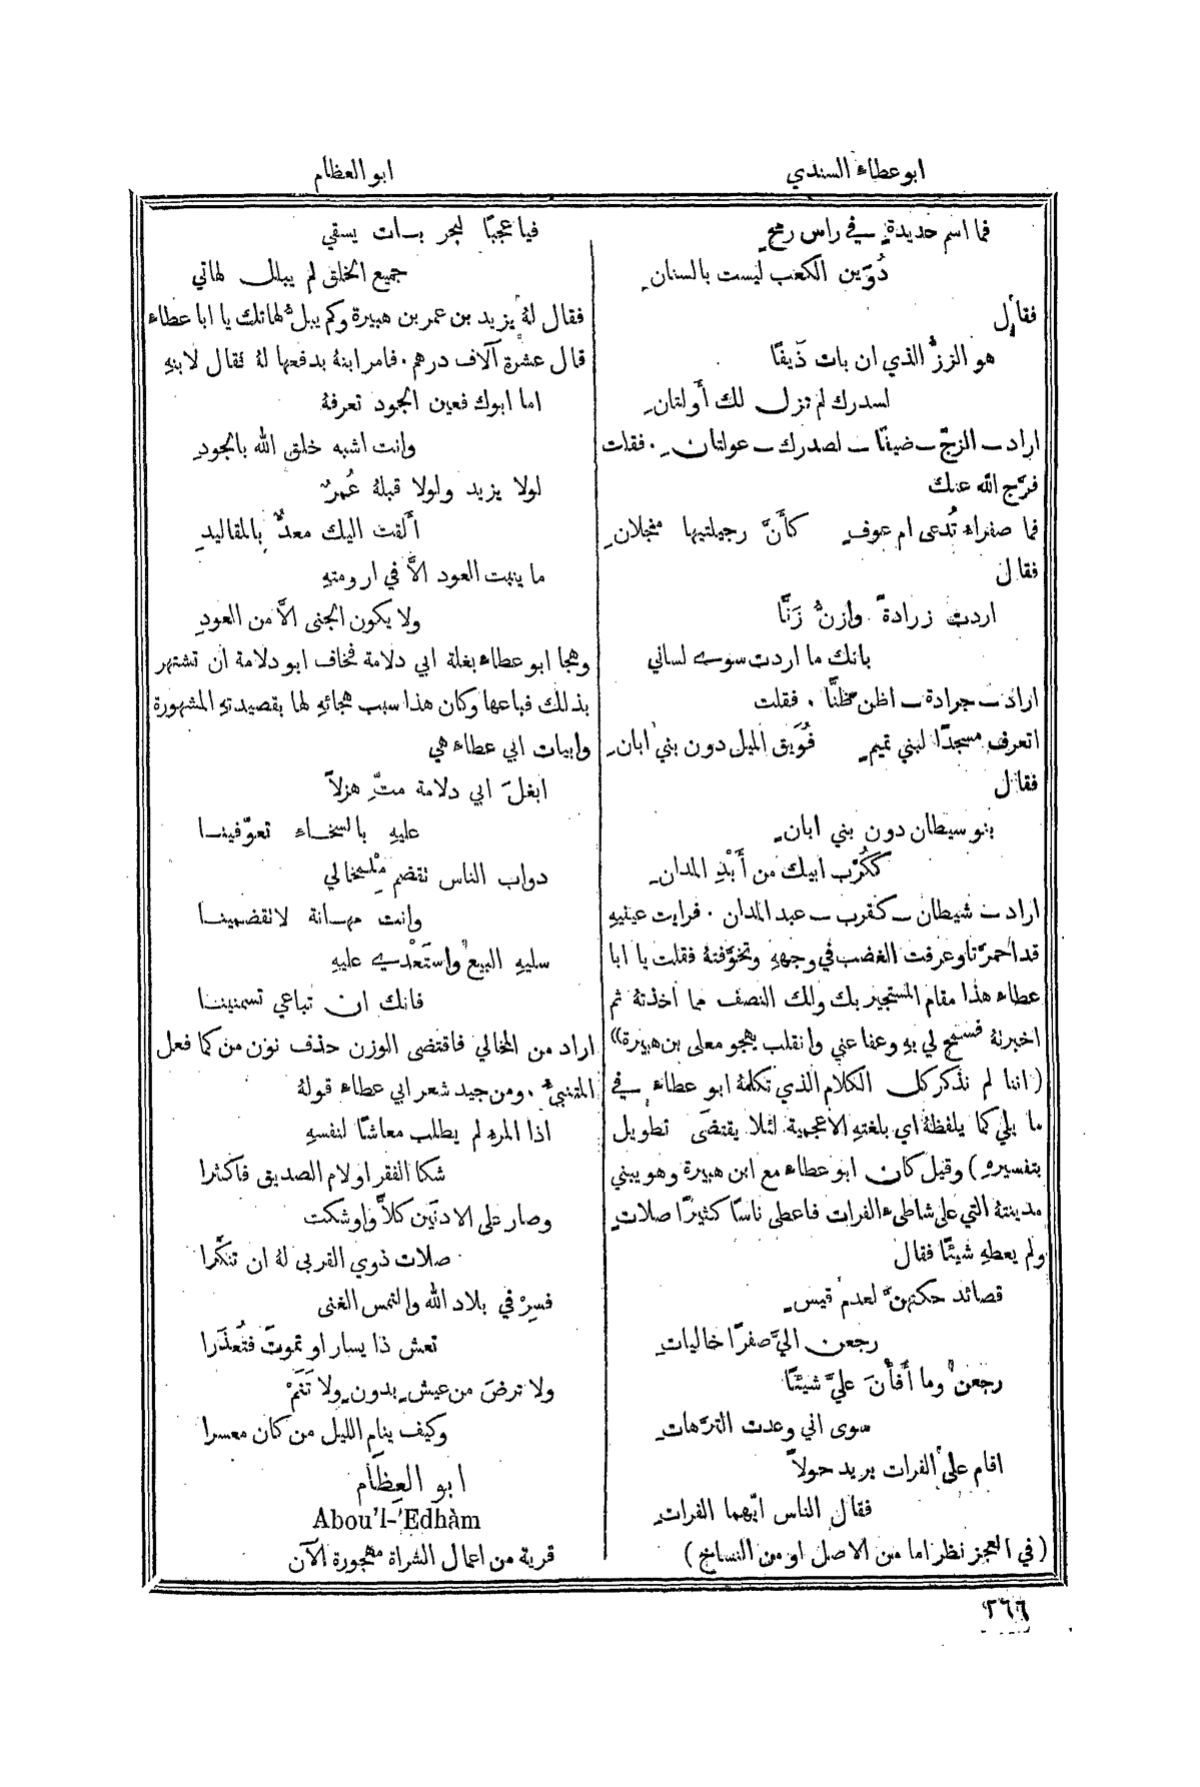 ابو عطاء السندي
ابو العظام
فما اسم حديدةٍ في راس رمحٍ
دُوَين الكعب ليست بالسنانِ
فقال
هو الززُّ الذي ان بات ذَيفًا
لسدرك لم تزل لك أَولتانِ
اراد ـ الزجّ ـ ضيفًا ـ لصدرك ـ عولتان ـ. فقلت
فرَّج الله عنك
فما صفراء تُدعى ام عوفٍ كأَنَّ رجيلتيها منجلانِ
فقال
اردتَ زرادةً وازنُّ زَنًّا
بانك ما اردت سوى لساني
اراد ـ جرادة ـ اظن ظنًّا. فقلت
اتعرف مسجدًا لبني تميمٍ فُوَيق الميل دون بني ابانِ
فقال
بنو سيطان دون بني ابانٍ
ككُرْب ابيك من أَبْدِ المدانِ
اراد ـ شيطان ـ كقرب ـ عبد المدان. فرايت عينيهِ
قد احمرّتا وعرفت الغضب في وجههِ وتخوَّفتهُ فقلت يا ابا
عطاء هذا مقام المستجير بك ولك النصف مما اخذتهُ ثم
اخبرتهُ فسمح لي بهِ وعفا عني وانقلب يهجو معلى بن هبيرة))
(اننا لم نذكر كل الكلام الذي تكلمهُ ابو عطاء في
ما يلي كما يلفظهُ اي بلغتهِ الاعجمية لئلا يقتضى تطويل
بتفسيرهِ) وقيل كان ابو عطاء مع ابن هبيرة وهو يبني
مدينتهُ التي على شاطىء الفرات فاعطى ناسًا كثيرًا صلاتٍ
ولم يعطهِ شيئًا فقال
قصائد حكتهنَّ لعدم قيسٍ
رجعن اليَّ صفرًا خالياتِ
رجعن وما أَفأْنَ عليَّ شيئًا
سوى اني وعدت الترَّهاتِ
اقام على الفرات يزيد حولاً
فقال الناس ايّهما الفراتِ
(في العجز نظر اما من الاصل او من النساخ)
فيا عجبًا لبحر بات يسقي
جميع الخلق لم يبلل لهاتي
فقال لهُ يزيد بن عمر بن هبيرة وكم يبلّ لهاتك يا ابا عطاء
قال عشرة آلاف درهم. فامر ابنهُ بدفعها لهُ فقال لابنهِ
اما ابوك فعين الجود تعرفهُ
وانت اشبه خلق الله بالجودِ
لولا يزيد ولولا قبلهُ عُمرٌ
ألقت اليك معدٌّ بالمقاليدِ
ما ينبت العود الاَّ في ارومتهِ
ولا يكون الجنى الاَّ من العودِ
وهجا ابو عطاء بغلة ابي دلامة فخاف ابو دلامة ان تشتهر
بذلك فباعها وكان هذا سبب هجائهِ لها بقصيدتهِ المشهورة
وابيات ابي عطاء هي
ابغلَ ابي دلامة متِّ هزلاً
عليهِ بالسخاء تعوّفينا
دواب الناس تقضم مِلْمخالي
وانت مهانة لا تقضمينا
سليهِ البيع واستَعْدي عليهِ
فانك ان تباعي تسمنينا
اراد من المخالي فاقتضى الوزن حذف نون من كما فعل
المتنبىء. ومن جيد شعر ابي عطاء قولهُ
اذا المرء لم يطلب معاشًا لنفسهِ
شكا الفقر او لام الصديق فاكثرا
وصار على الادنَين كلاًّ واوشكت
صلات ذوي القربى لهُ ان تنكّرا
فسِرْ في بلاد الله والتمس الغنى
تعش ذا يسار او تموتَ فتُعذَرا
ولا ترضَ من عيشٍ بدونٍ ولا تَنَمْ
وكيف ينام الليل من كان معسرا
ابو العِظَام
Abou'l-'Edhàm
قرية من اعمال الشراة مهجورة الآن
٢٦٦